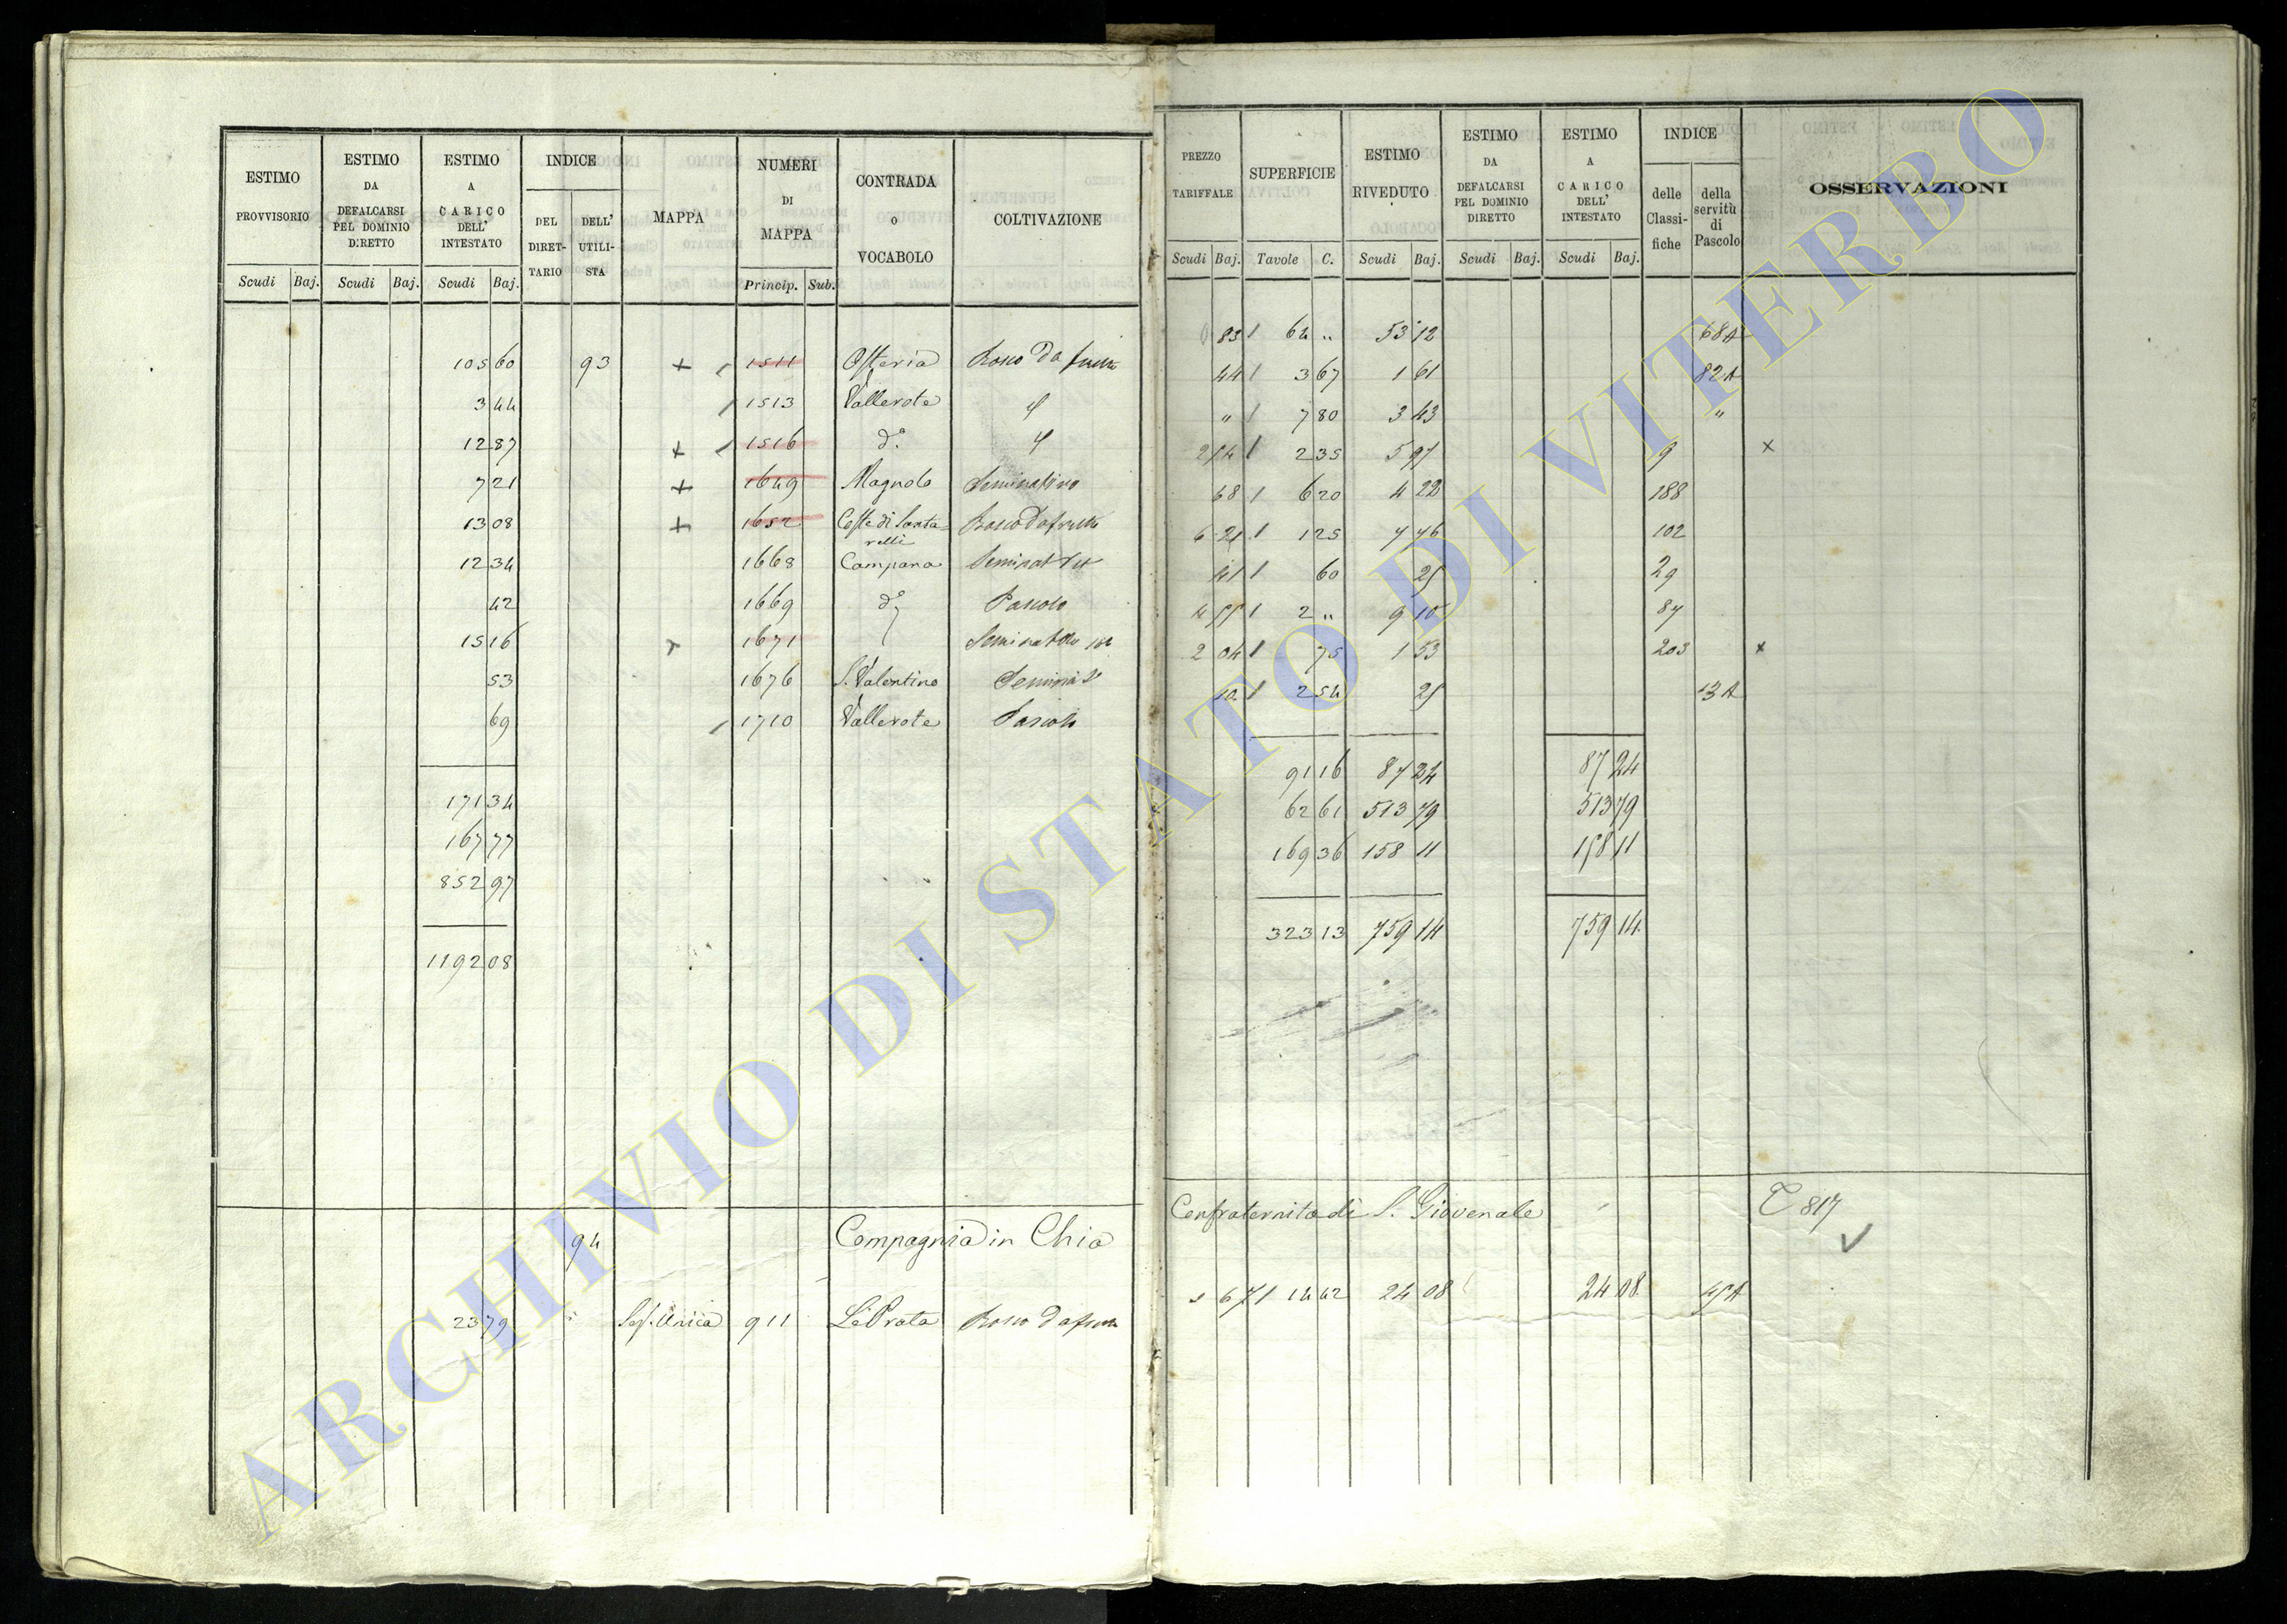 ESTIMO PROVVISORIO Scudi Baj.
ESTIMO DA DEFALCARSI PEL DOMINIO DIRETTO Scudi Baj.
ESTIMO A CARICO DELL' INTESTATO Scudi Baj.
INDICE DEL DIRETTARIO DELL' UTILISTA
MAPPA
NUMERI DI MAPPA Princip. Sub.
CONTRADA O VOCABOLO
COLTIVAZIONE
105 60 93 + 1511 Osteria Bosco da frutto
3 44 1513 Vallerote
12 87 + 1516 d.º
7 21 + 1649 Magnolo Seminativo
13 08 + 1652 Coste di Santarelli Bosco da frutto
12 34 1668 Campana
42 1669 d.º Pascolo
15 16 1671
53 1676 S. Valentino
69 1710 Vallerote Pascolo
171 34
167 77
852 97
1192 08
94 Compagnia in Chia
23 79 Sez. Unica 911 Le Prata Bosco da frutto
PREZZO TARIFFALE Scudi Baj.
SUPERFICIE Tavole C.
ESTIMO RIVEDUTO Scudi Baj.
ESTIMO DA DEFALCARSI PEL DOMINIO DIRETTO Scudi Baj.
ESTIMO A CARICO DELL' INTESTATO Scudi Baj.
INDICE delle Classifiche della servitù di Pascolo
OSSERVAZIONI
83 64 " 53 12 68A
44 3 67 1 61 82A
" 7 80 3 43 "
2 35 5 97 9 ×
68 6 20 4 22 188
6 21 1 25 7 76 102
41 60 25 29
4 55 2 " 9 10 87
2 04 75 1 53 203 ×
10 2 54 25 13A
91 16 87 24 87 24
62 61 513 79 513 79
169 36 158 11 158 11
323 13 759 14 759 14
Confraternita di S. Giovenale
817
1 67 14 42 24 08 24 08
ARCHIVIO DI STATO DI VITERBO